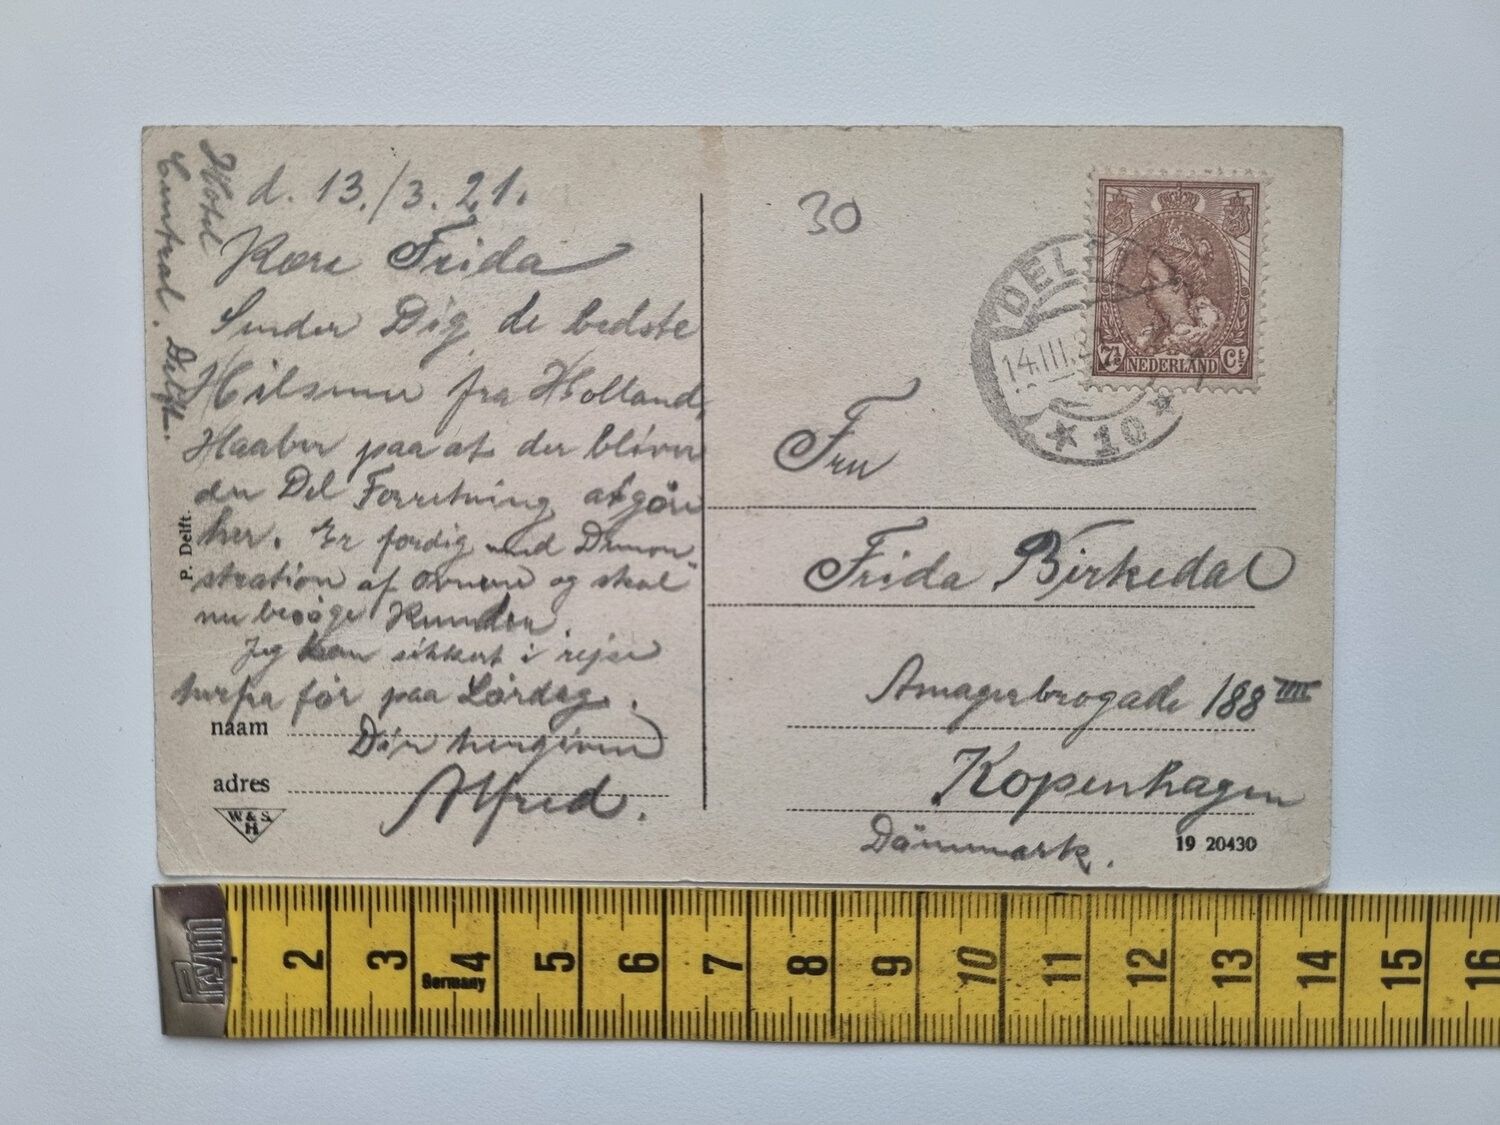 Hotel
Central. Delft.
d. 13./3. 21.
Kære Frida
Sender Dig de bedste
Hilsener fra Holland,
Haaber paa at der bliver
en Del Forretning at göre
her. Er færdig med Demon-
stration af ovnene og skal
nu besöge Kunder.
Jeg kan sikkert i rejse
herfra för paa Lördag.
Din hengivne
Alfred.
naam
adres
W & S.
H
P. Delft.
30
DELFT
14.III.2
★ 10 ★
7½ NEDERLAND Ct
Fru
Frida Birkedal
Amagerbrogade 188 IIII
Kopenhagen
Dänemark.
19 20430
Prym
2 3 4 5 6 7 8 9 10 11 12 13 14 15 16
Germany